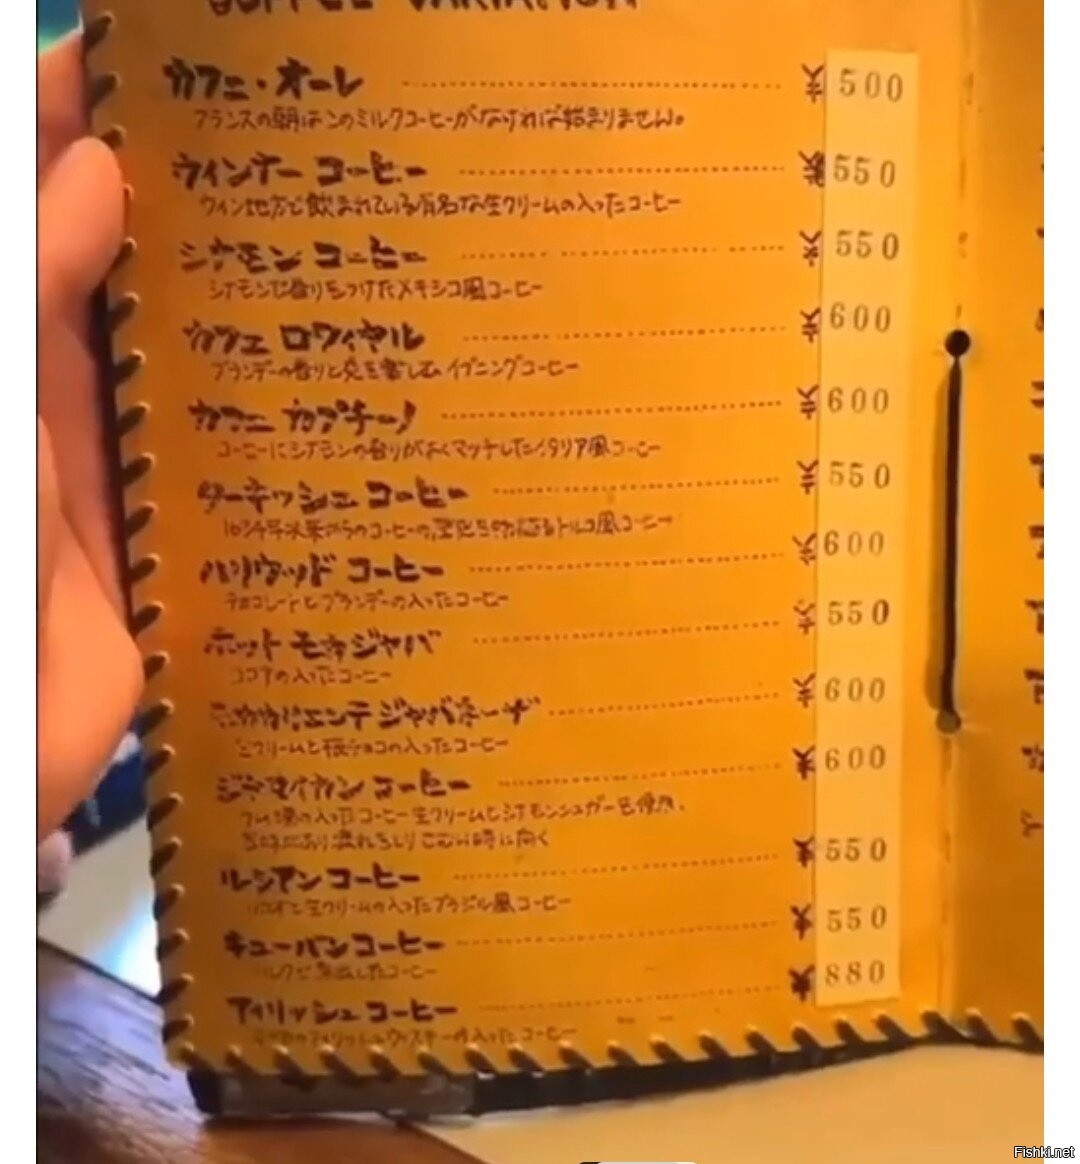 COFFEE VARIATION
カフェ・オーレ ¥500
フランスの朝はこのミルクコーヒーがなければ始まりません。
ウィンナー コーヒー ¥550
ウィン地方で飲まれている有名な生クリームの入ったコーヒー
シナモン コーヒー ¥550
シナモンで香りをつけたメキシコ風コーヒー
カフェ ロワイヤル ¥600
ブランデーの香りと炎を楽しむイブニングコーヒー
カフェ カプチーノ ¥600
コーヒーにシナモンの香りがよくマッチしたイタリア風コーヒー
ターキッシュ コーヒー ¥550
コーヒーの トルコ風コーヒー
ハリウッド コーヒー ¥600
チョコレートとブランデーの入ったコーヒー
ホット モカジャバ ¥550
ココアの入ったコーヒー
ジャバネーザ ¥600
生クリームと板チョコの入ったコーヒー
ジャマイカン コーヒー ¥600
ラム酒の入ったコーヒー生クリームとシナモンシュガーを使い、
ルシアンコーヒー ¥550
ココアと生クリームの入ったブラジル風コーヒー
キューバンコーヒー ¥550
ミルクで煮出したコーヒー
アイリッシュコーヒー ¥880
アイリッシュウィスキーの入ったコーヒー
Fishki.net